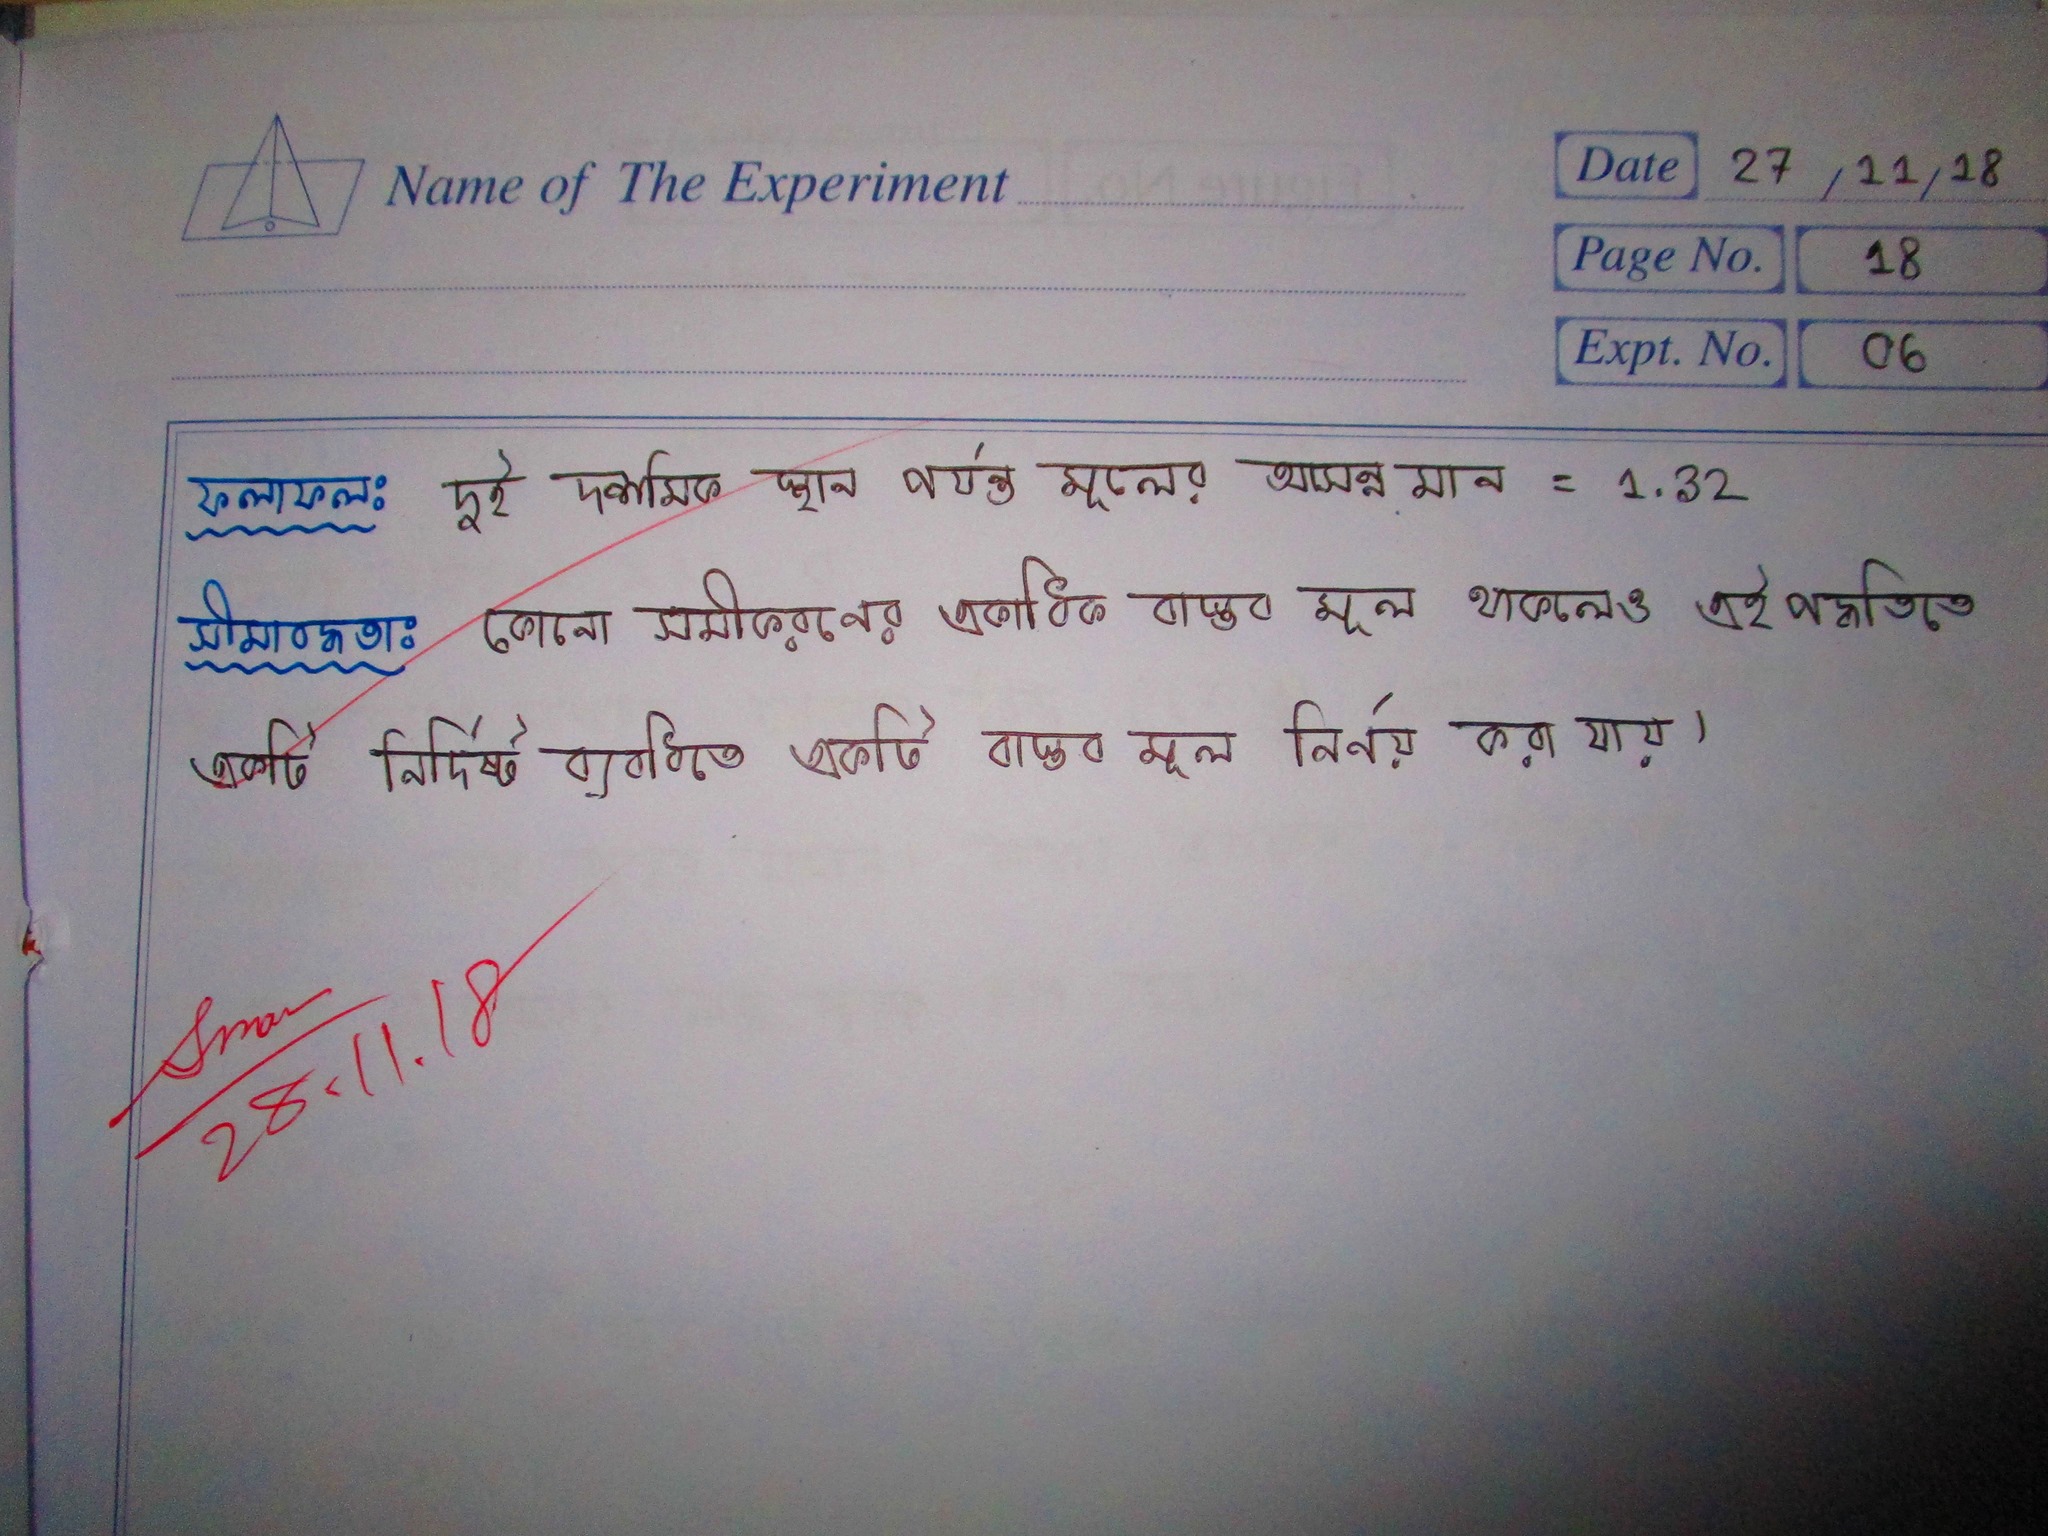 Name of The Experiment
Date 27/11/18
Page No. 18
Expt. No. 06
ফলাফলঃ দুই দশমিক স্থান পর্যন্ত মূলের আসন্ন মান = 1.32
সীমাবদ্ধতাঃ কোনো সমীকরনের একাধিক বাস্তব মূল থাকলেও এই পদ্ধতিতে
একটি নির্দিষ্ট ব্যবধিতে একটি বাস্তব মূল নির্নয় করা যায়।
28.11.18